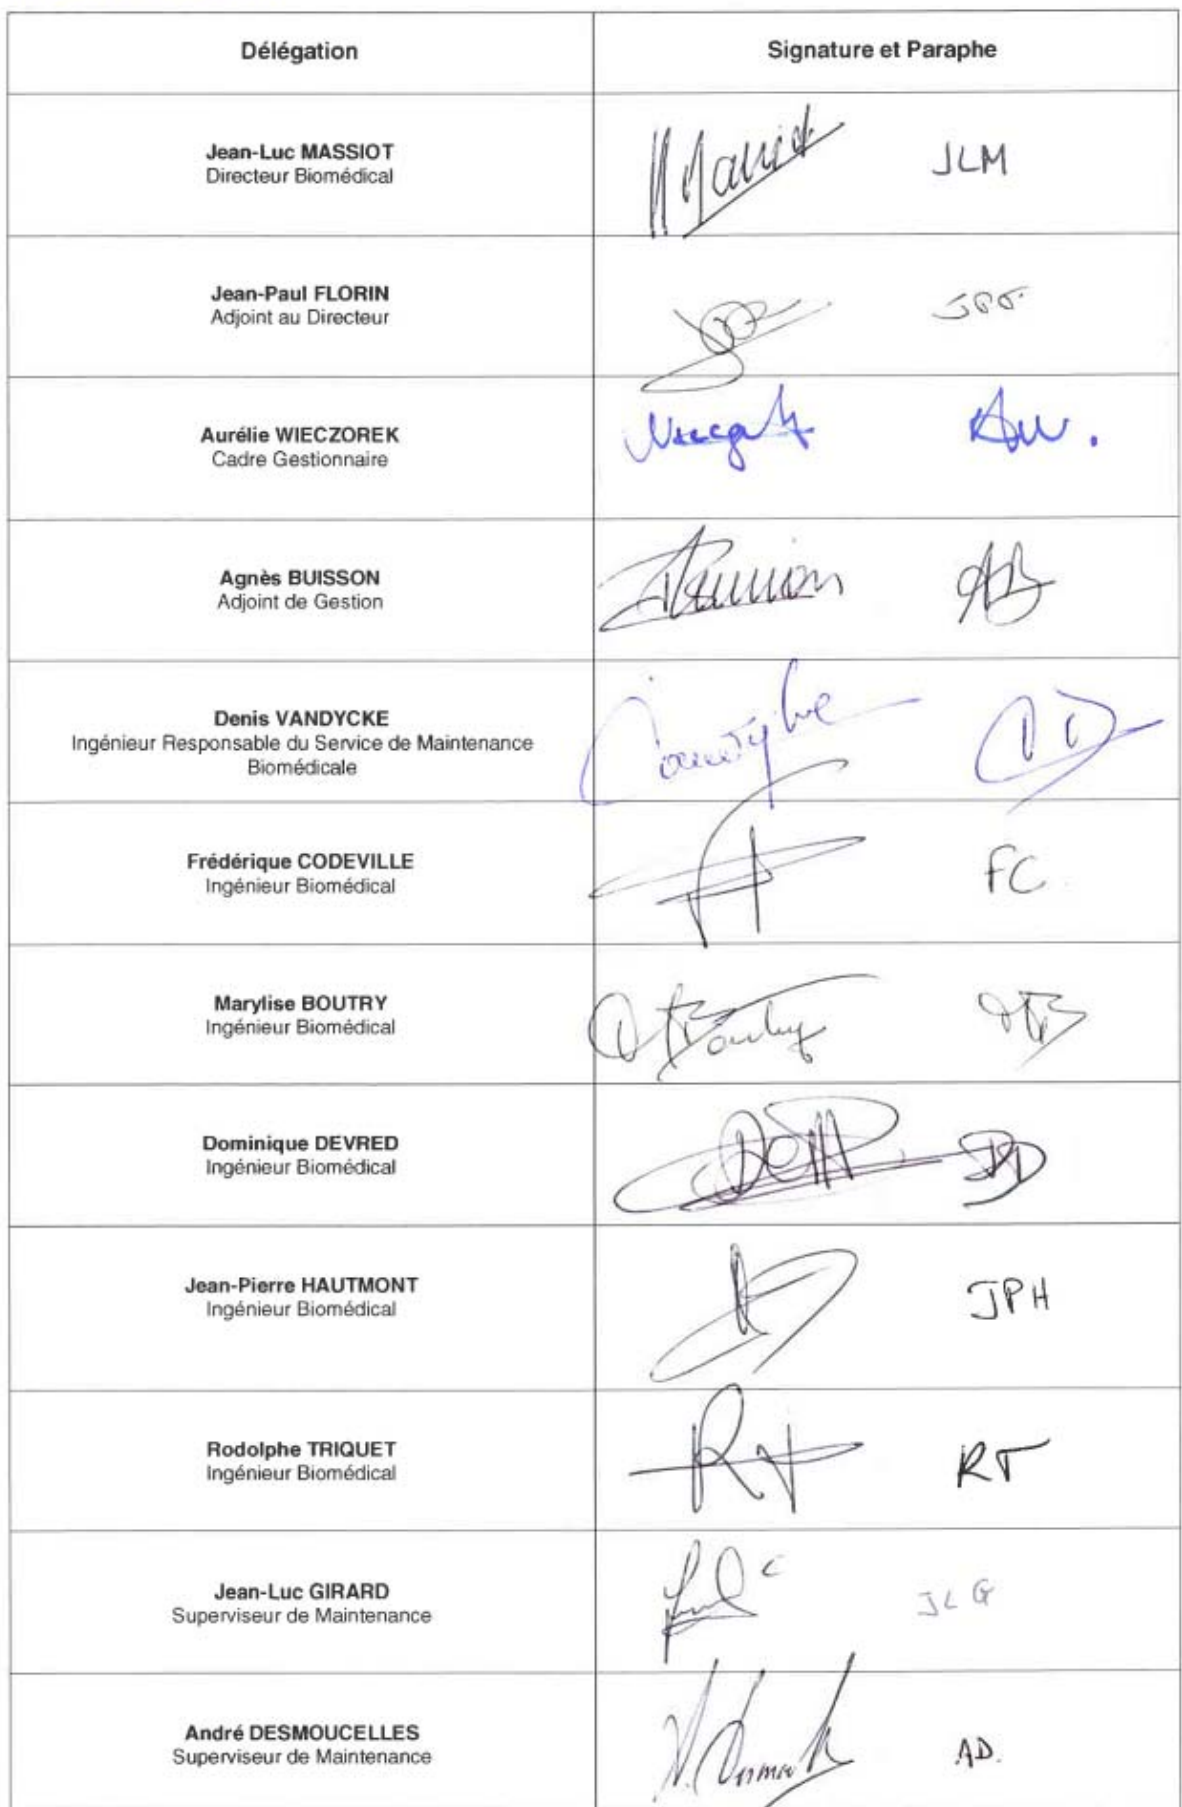 Délégation
Signature et Paraphe
Jean-Luc MASSIOT
Directeur Biomédical
JLM
Jean-Paul FLORIN
Adjoint au Directeur
JPF
Aurélie WIECZOREK
Cadre Gestionnaire
AW.
Agnès BUISSON
Adjoint de Gestion
AB
Denis VANDYCKE
Ingénieur Responsable du Service de Maintenance
Biomédicale
Frédérique CODEVILLE
Ingénieur Biomédical
FC
Marylise BOUTRY
Ingénieur Biomédical
Dominique DEVRED
Ingénieur Biomédical
DD
Jean-Pierre HAUTMONT
Ingénieur Biomédical
JPH
Rodolphe TRIQUET
Ingénieur Biomédical
RT
RT
Jean-Luc GIRARD
Superviseur de Maintenance
JLG
André DESMOUCELLES
Superviseur de Maintenance
AD.